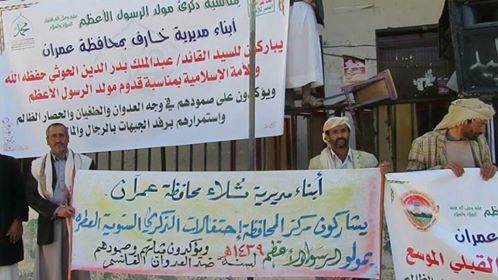 بمناسبة ذكرى مولد الرسول الأعظم
أبناء مديرية خارف بمحافظة عمران
يباركون للسيد القائد/ عبدالملك بدر الدين الحوثي حفظه الله
والأمة الإسلامية بمناسبة قدوم مولد الرسول الأعظم
ويؤكدون على صمودهم في وجه العدوان والطغيان والحصار الظالم
واستمرارهم برفد الجبهات بالرجال
أبناء مديرية ثلاء محافظة عمران
يشاركون مركز المحافظة احتفالات الذكرى السنوية العطرة
بمولد الرسول الأعظم لسنة ١٤٣٩هـ ويؤكدون ثباتهم وصمودهم
ضد العدوان الغاشم
عمران
المقبلي الموسع